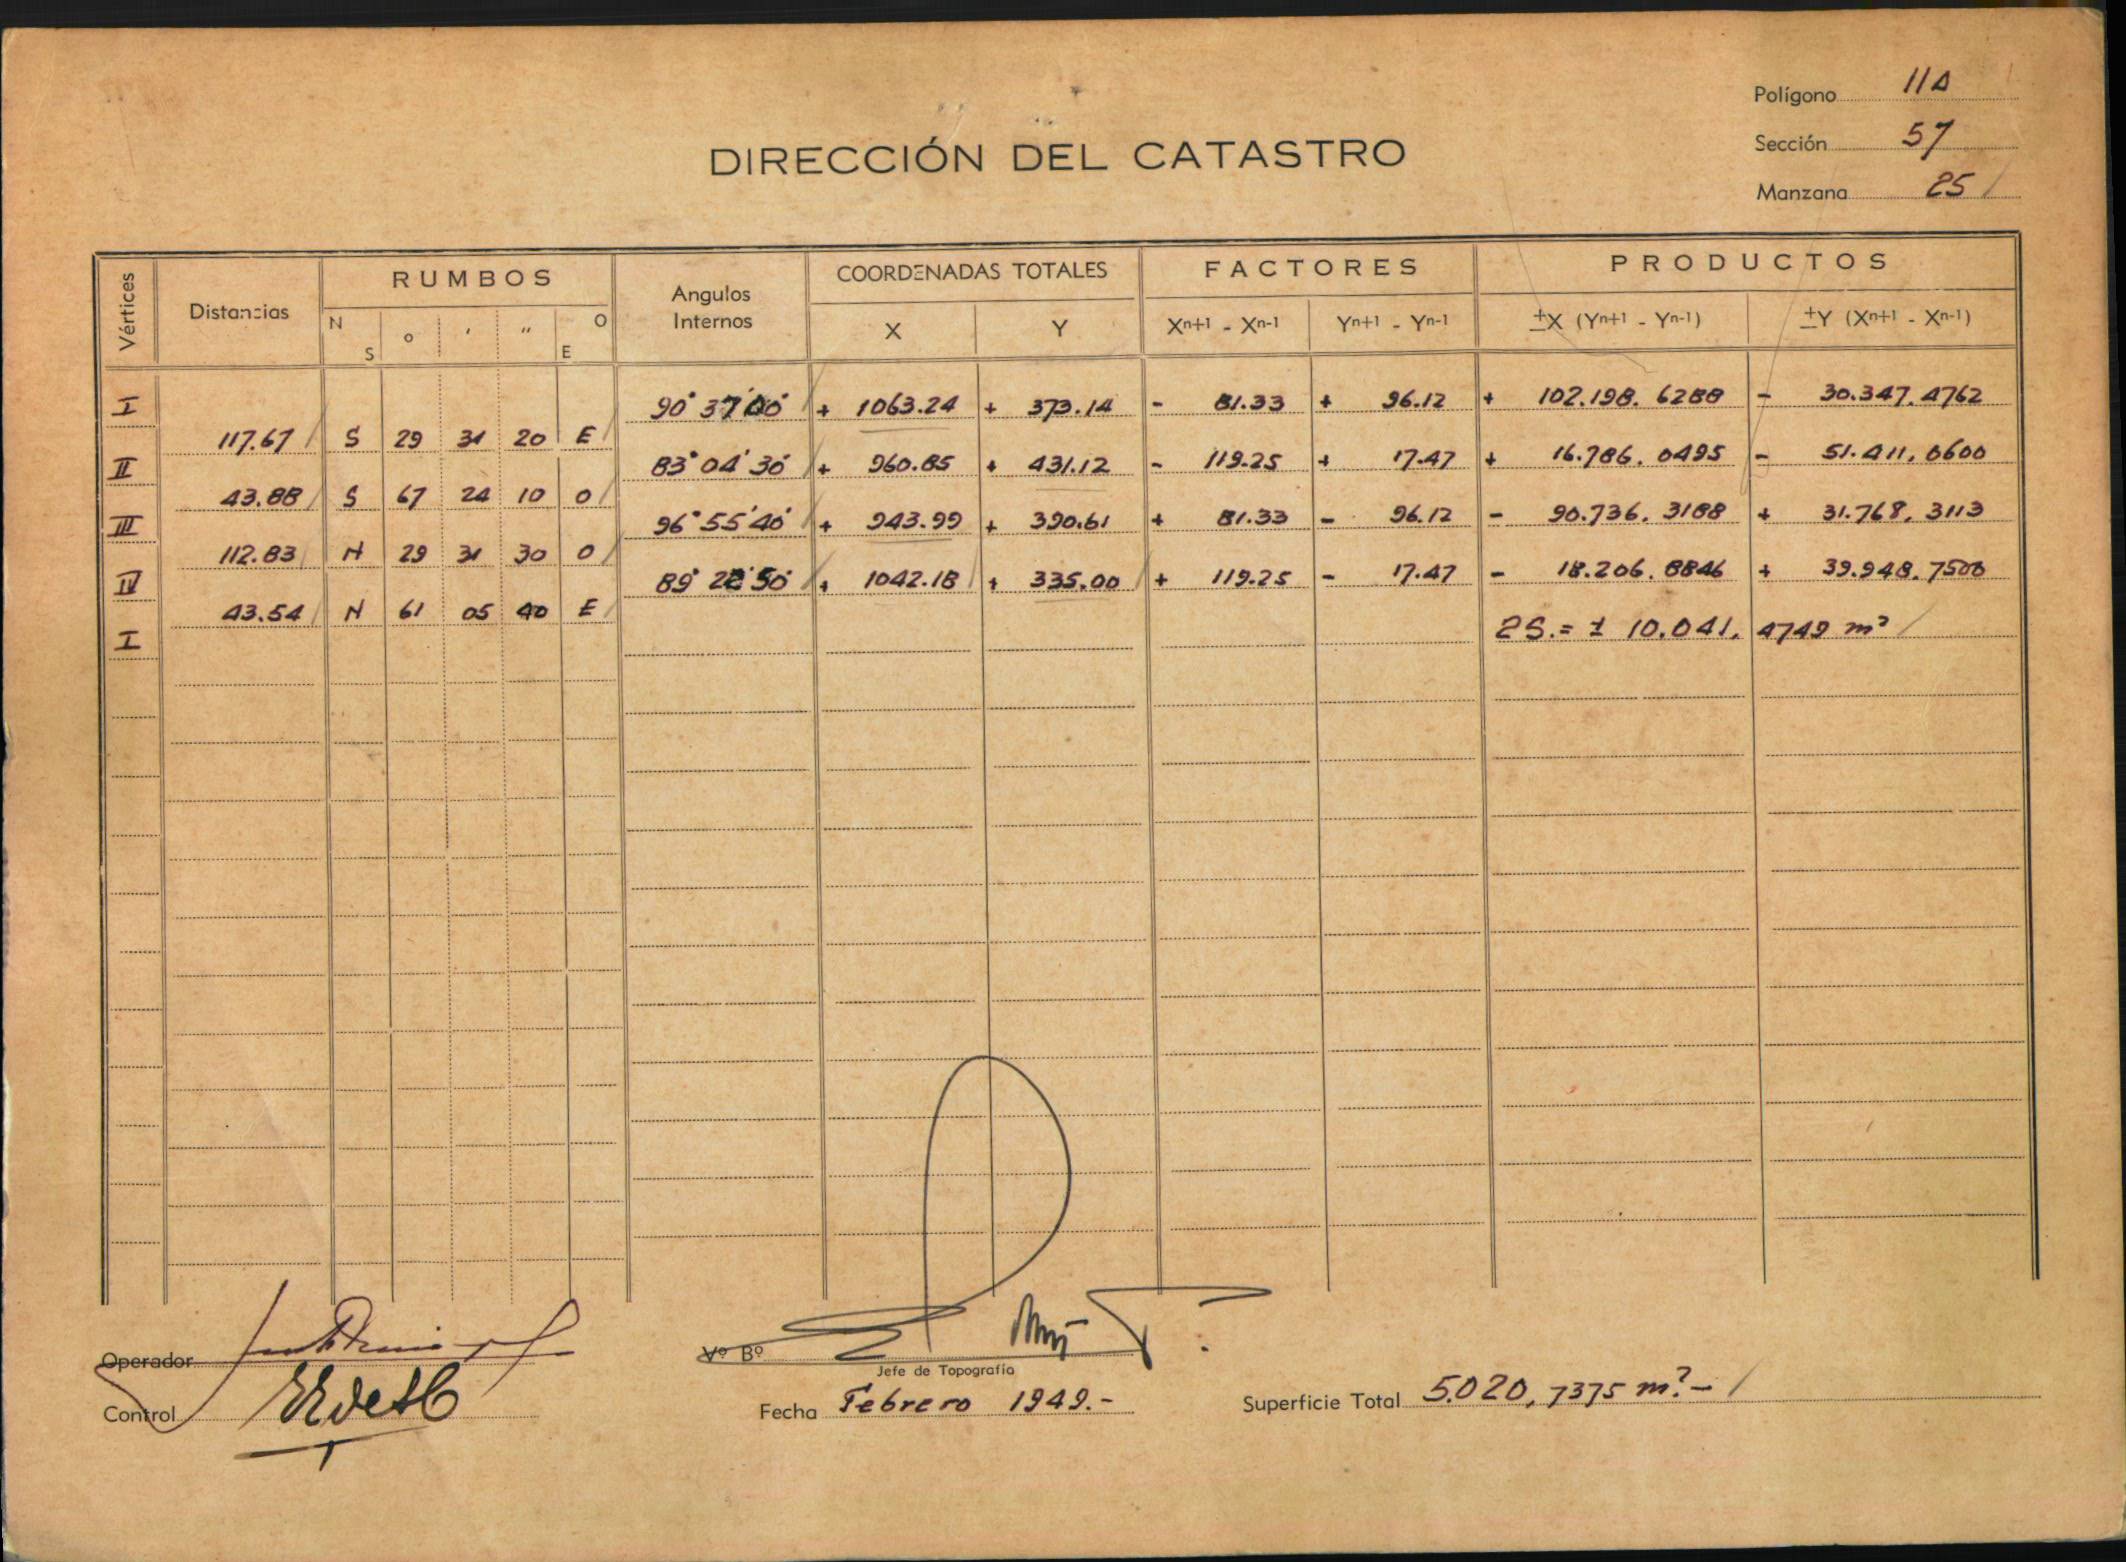 Polígono 11A
Sección 57
Manzana 25
DIRECCIÓN DEL CATASTRO
Vértices Distancias RUMBOS Angulos Internos COORDENADAS TOTALES FACTORES PRODUCTOS
N S ° ′ ″ O E X Y Xn+1 - Xn-1 Yn+1 - Yn-1 ±X (Yn+1 - Yn-1) ±Y (Xn+1 - Xn-1)
I 90° 37' 00" + 1063.24 + 373.14 - 81.33 + 96.12 + 102.198.6288 - 30.347.4762
117.67 S 29 31 20 E
II 83° 04' 30" + 960.85 + 431.12 - 119.25 + 17.47 + 16.786.0495 - 51.411.0600
43.88 S 67 24 10 O
III 96° 55' 40" + 943.99 + 390.61 + 81.33 - 96.12 - 90.736.3188 + 31.768.3113
112.83 N 29 31 30 O
IV 89° 22' 50" + 1042.18 + 335.00 + 119.25 - 17.47 - 18.206.8846 + 39.948.7500
43.54 N 61 05 40 E
I 2S.= ± 10.041.4749 m²
Operador
Vº Bº
Jefe de Topografía
Control
Fecha Febrero 1949.-
Superficie Total 5.020,7375 m².-